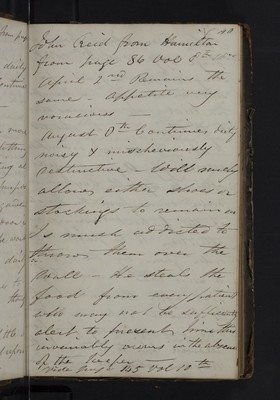 40
John Reid from Hamilton
from page 86 Vol 8th
April 2nd Remains the
same appetite very
voracious —
August 8th Continues dirty
noisy & mischeviously
destructive — Will rarely
allow either shoes or
stockings to remain on
Is much addicted to
throwing them over the
wall — He steals the
food from every patient
who may not be sufficiently
alert to prevent, something
invariably occurs in the absence
of the keeper —
Vide page 145 Vol 10th